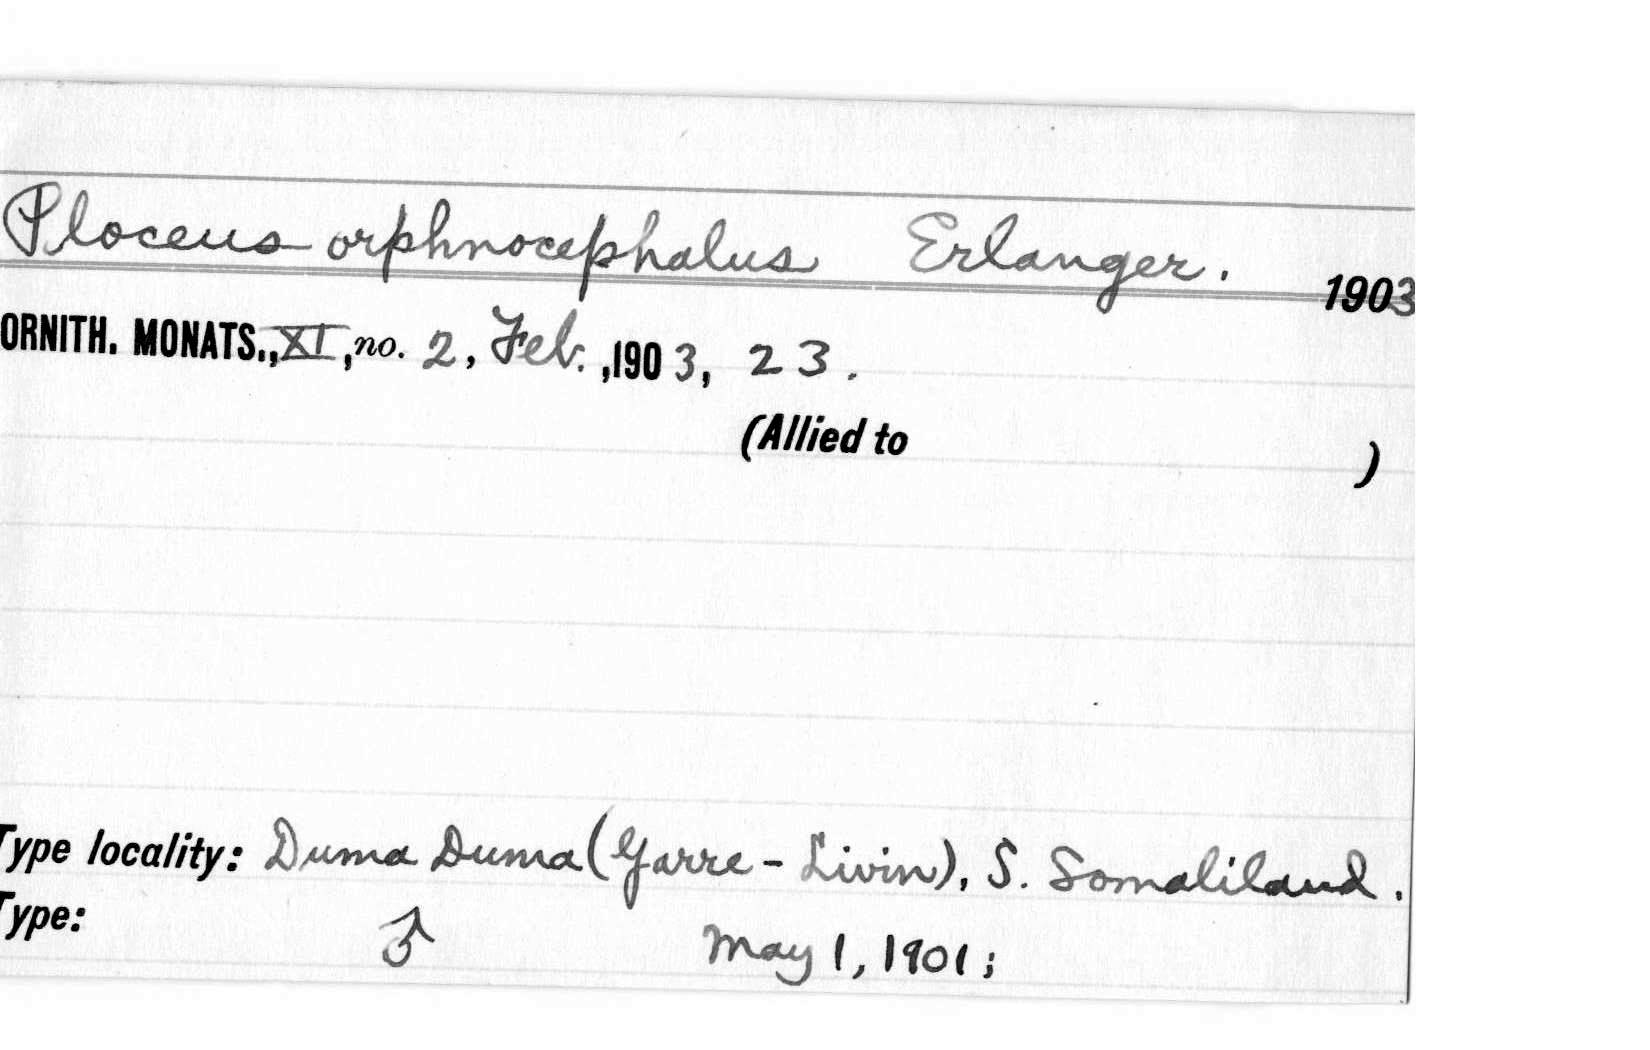 Ploceus orphnocephalus Erlanger. 1903
ORNITH. MONATS., XI, no. 2, Feb. ,1903, 23.
(Allied to )
Type locality: Duma Duma (Garre-Livin), S. Somaliland.
Type: ♂ May 1, 1901;